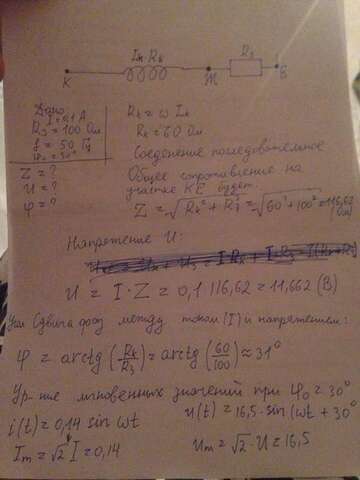 Lк Rк
R3
К
М
В
Дано
I = 0,1 А
R3 = 100 Ом
f = 50 Гц
φ0 = 30°
Z = ?
U = ?
φ = ?
Rк = ω Lк
Rк = 60 Ом
Соединение последовательное
Общее сопротивление на
участке КЕ будет.
Z = √Rк² + R3² = √60² + 100² = 116,62 (Ом)
Напряжение U:
U = I · Z = 0,1 116,62 = 11,662 (В)
Угол Сдвига фаз между током (I) и напряжением:
φ = arctg (Rк/R3) = arctg (60/100) ≈ 31°
Ур-ние мгновенных значений при φ0 = 30°
i(t) = 0,14 sin ωt
u(t) = 16,5 · sin (ωt + 30°
Im = √2 I = 0,14
Um = √2 · U = 16,5